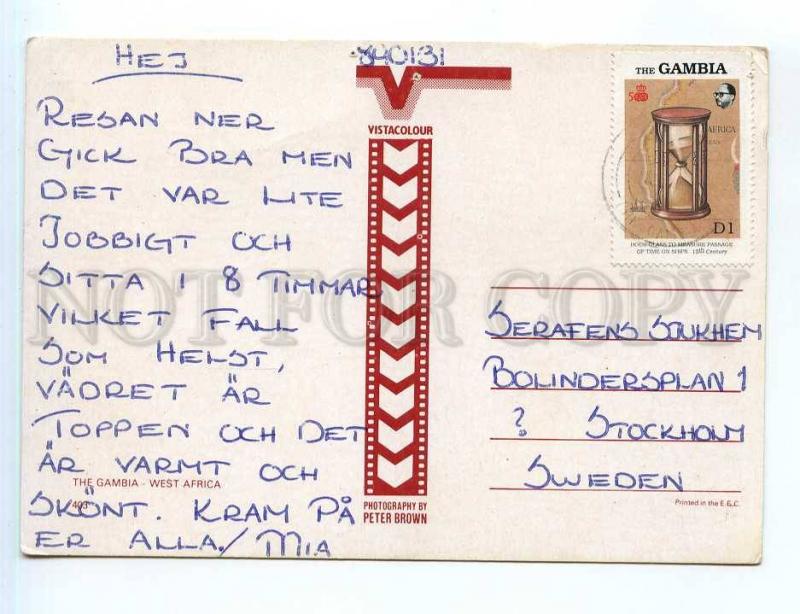 HEJ
940131
RESAN NER
GICK BRA MEN
DET VAR LITE
JOBBIGT OCH
SITTA I 8 TIMMAR,
VILKET FALL
SOM HELST,
VÄDRET ÄR
TOPPEN OCH DET
ÄR VARMT OCH
SKÖNT. KRAM PÅ
ER ALLA./MIA
THE GAMBIA - WEST AFRICA
403
VISTACOLOUR
PHOTOGRAPHY BY
PETER BROWN
THE GAMBIA
AFRICA
D1
HOUR-GLASS TO MEASURE PASSAGE
OF TIME ON SHIPS. 15th Century
SERAFENS SJUKHEM
BOLINDERSPLAN 1
? STOCKHOLM
SWEDEN
Printed in the E.E.C.
NOT FOR COPY